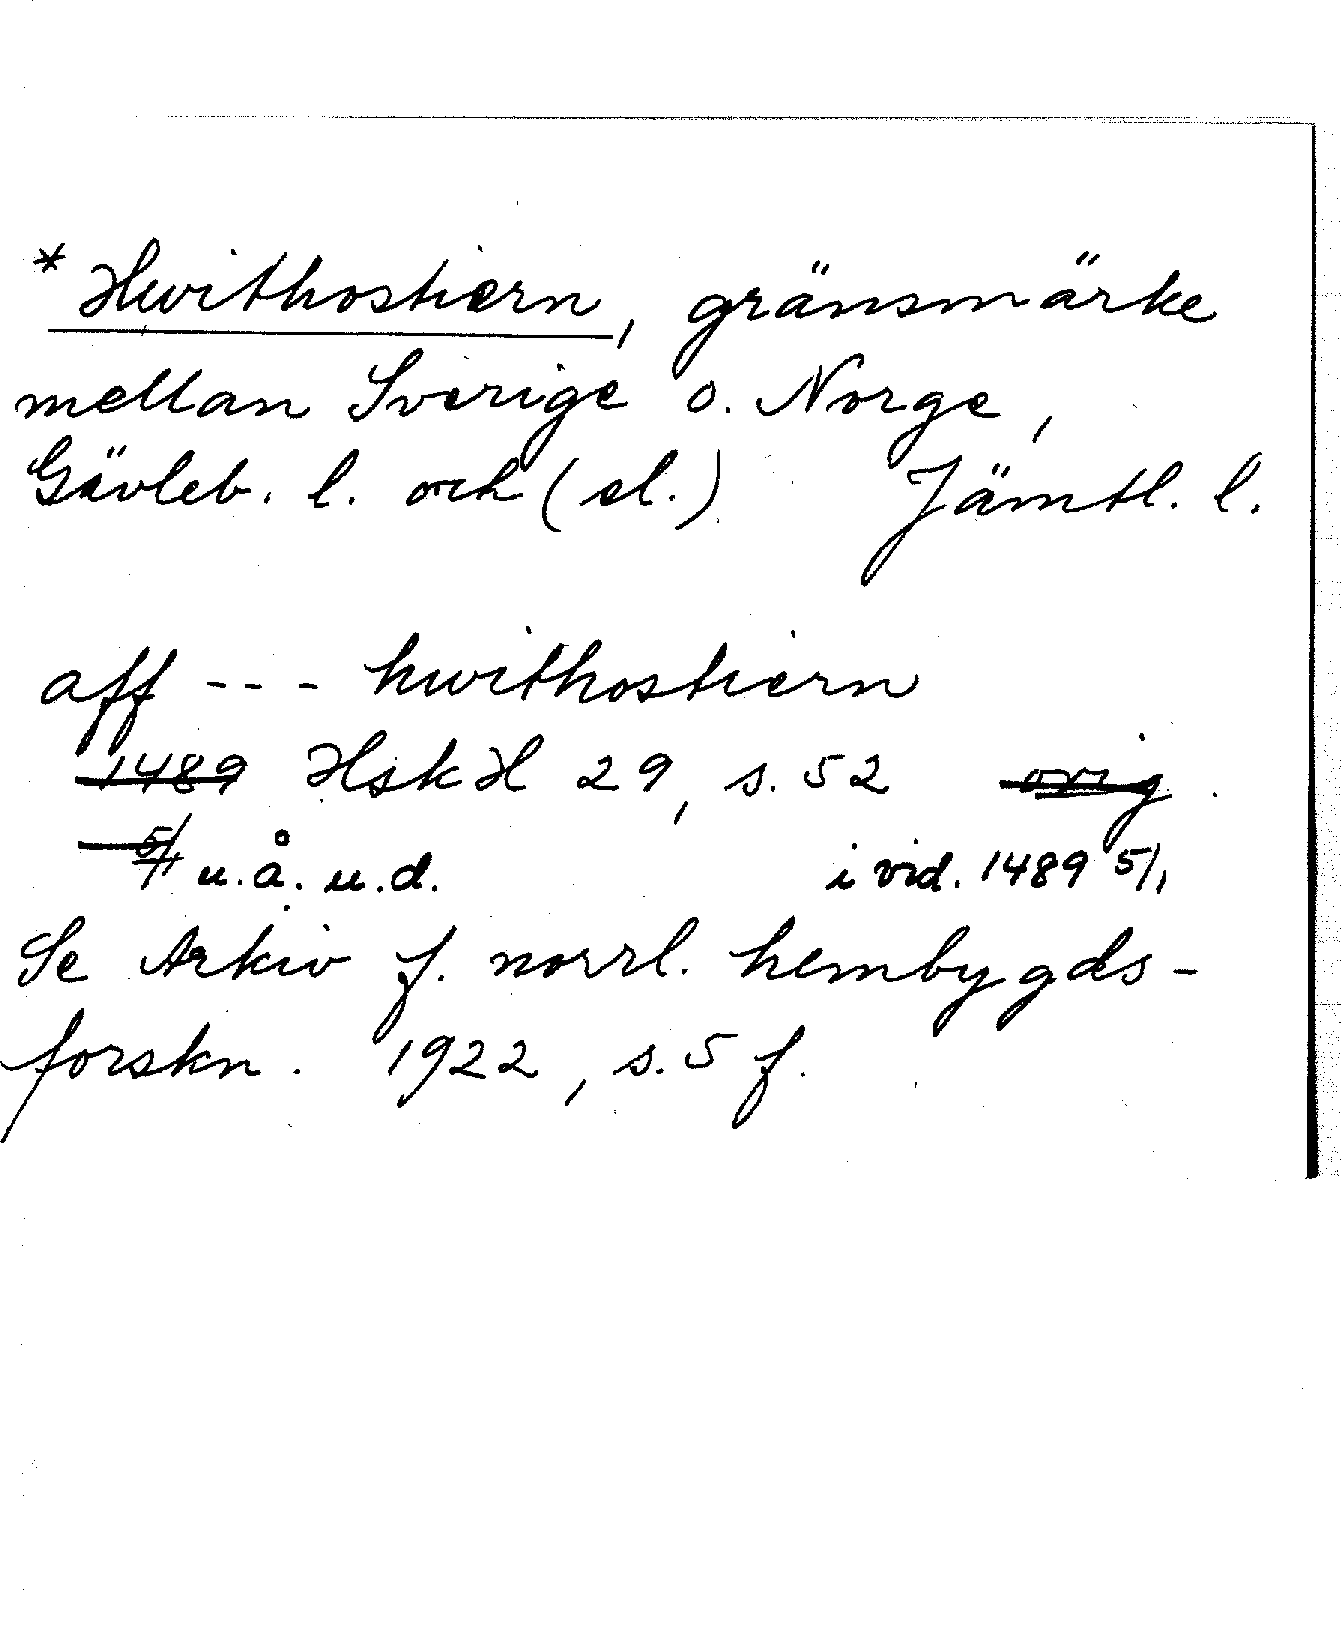 * Hwithostiern, gränsmärke
mellan Sverige o. Norge,
Gävleb. l. och (el.) Jämtl. l.
aff --- hwithostiern
1489 HskH 29, s. 52 orig.
5/1 u.å. u.d. i vid. 1489 5/1
Se Arkiv f. norrl. hembygds-
forskn. 1922, s. 5 f.